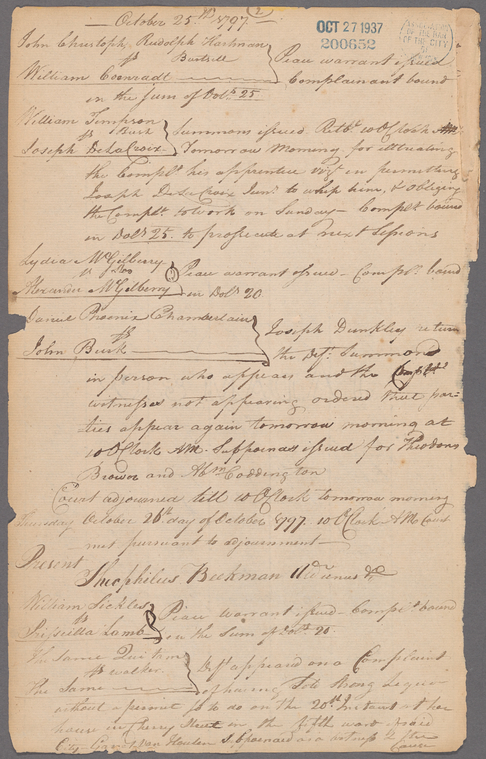 October 25th 1797 (2
OCT 27 1937
200652
John Christoph, Rudolph Hartman
vs
Peace warrant issued
William Coonradt
Complainant bound
in the sum of Dols 25
William Timpson
vs
Summons issued Retble 10 OClock AM
Joseph De La Croix
Tomorrow Morning for illtreating
the Complt his apprentice vizt in permitting
Joseph De La Croix Junr to whip him, & obliging
the Complt to work on Sunday - Complt bound
in Dols 25. to prosecute at next Sessions
Lydia McGilberry
vs
Peace warrant issued - Compt bound
Alexander McGilberry
in Dols 20
Daniel Phoenix Chamberlain
vs
Joseph Dunkley return
John Burk
the Deft Summond
in person who appears and the Complts
witnesses not appearing ordered that par-
ties appear again tomorrow morning at
10 OClock AM. Subpoenas issued for Theodorus
Brower and Abm Coddington
Court adjourned till 10 OClock tomorrow morning
Thursday October 26th day of October 1797. 10 OClock AM Court
met pursuant to adjournment
Present
Theophilus Beekman
William Sickles
vs
Peace warrant issued - Compt bound
Priscilla Lamb
in the Sum of Dols 20
The Same Quitam
vs
Deft appeard on a Complaint
The Same
of having Sold Strong Liquor
without a permit so to do on the 20th Instant at her
house in Cherry Street in the fifth ward
Subpoenaed as a witness in the
Cause